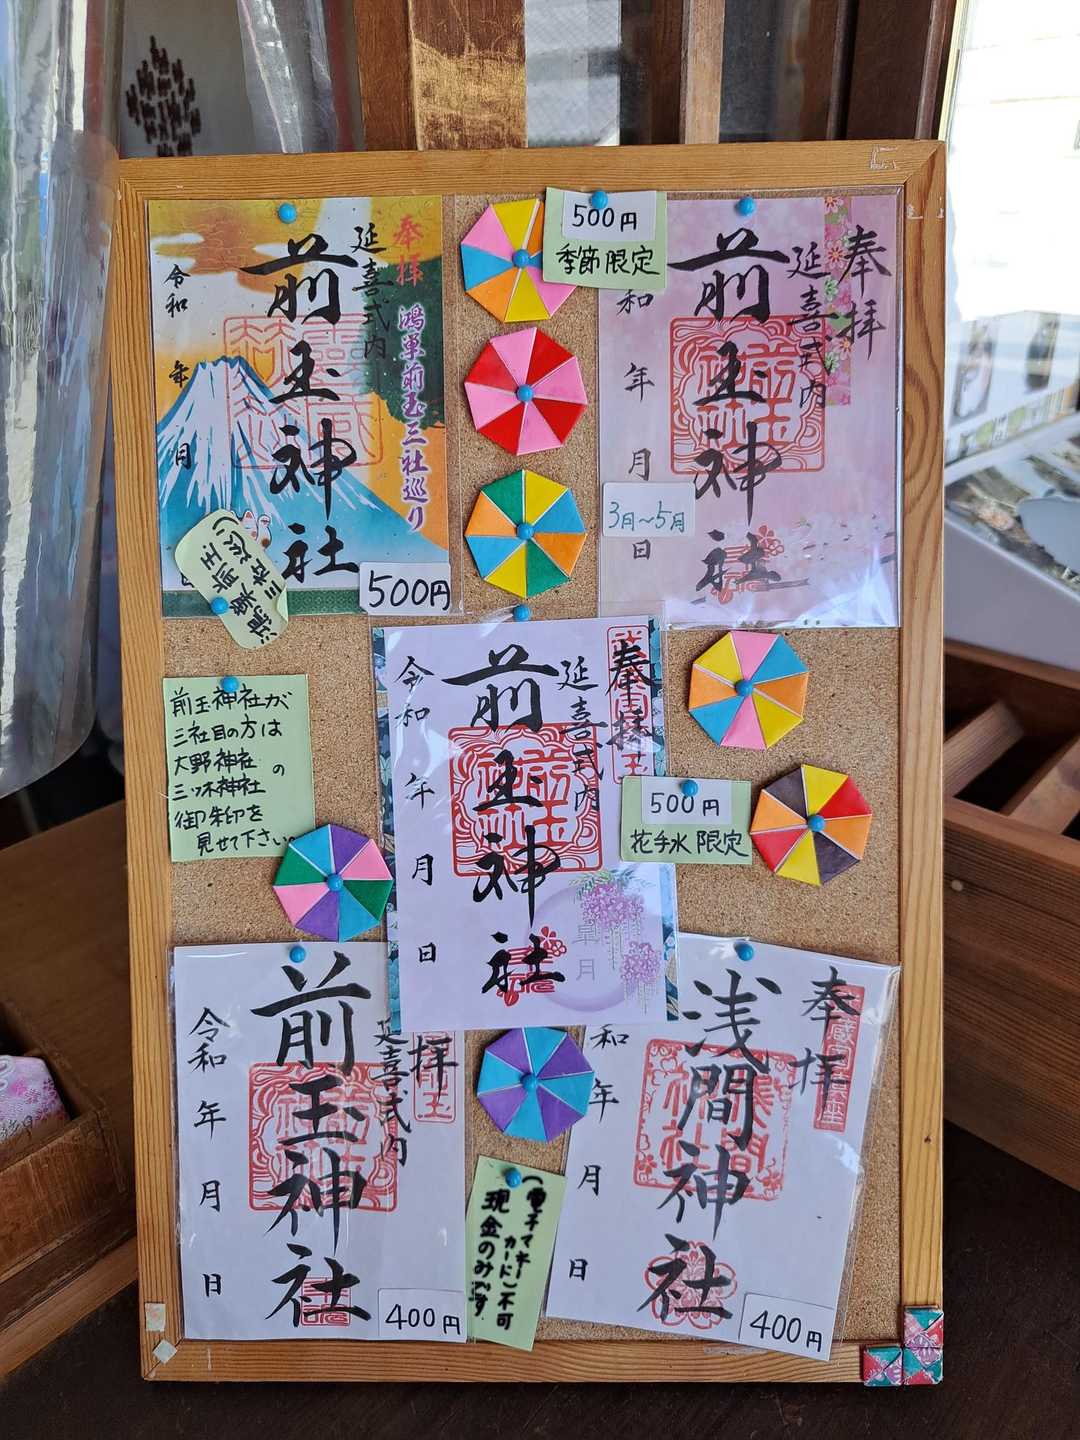 奉拝
延喜式内
前玉神社
鴻巣前玉三社巡り
令和
年
月
500円
鴻巣前玉
三社巡り
500円
季節限定
奉拝
延喜式内
前玉神社
和
年
月
日
3月～5月
前玉神社が
三社目の方は
大野神社
三ツ木神社の
御朱印を
見せて下さい
奉拝
延喜式内
前玉神社
令和
年
月
日
皐月
500円
花手水限定
拝
延喜式内
前玉神社
令和
年
月
日
400円
(電子マネー
カード)不可
現金のみです
奉拝
浅間神社
和
年
月
日
400円